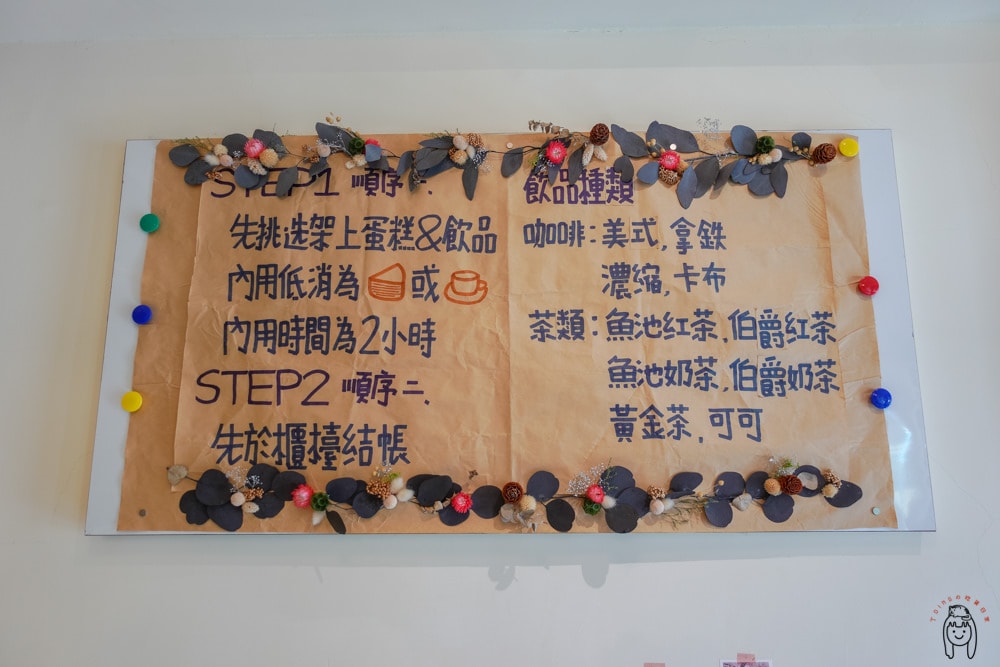 STEP1 順序一.
先挑选架上蛋糕&飲品
內用低消為 或
內用時間為2小時
STEP2 順序二.
先於櫃檯结帳
飲品種類
咖啡:美式,拿鉄
濃缩,卡布
茶類:魚池红茶,伯爵红茶
魚池奶茶,伯爵奶茶
黃金茶,可可